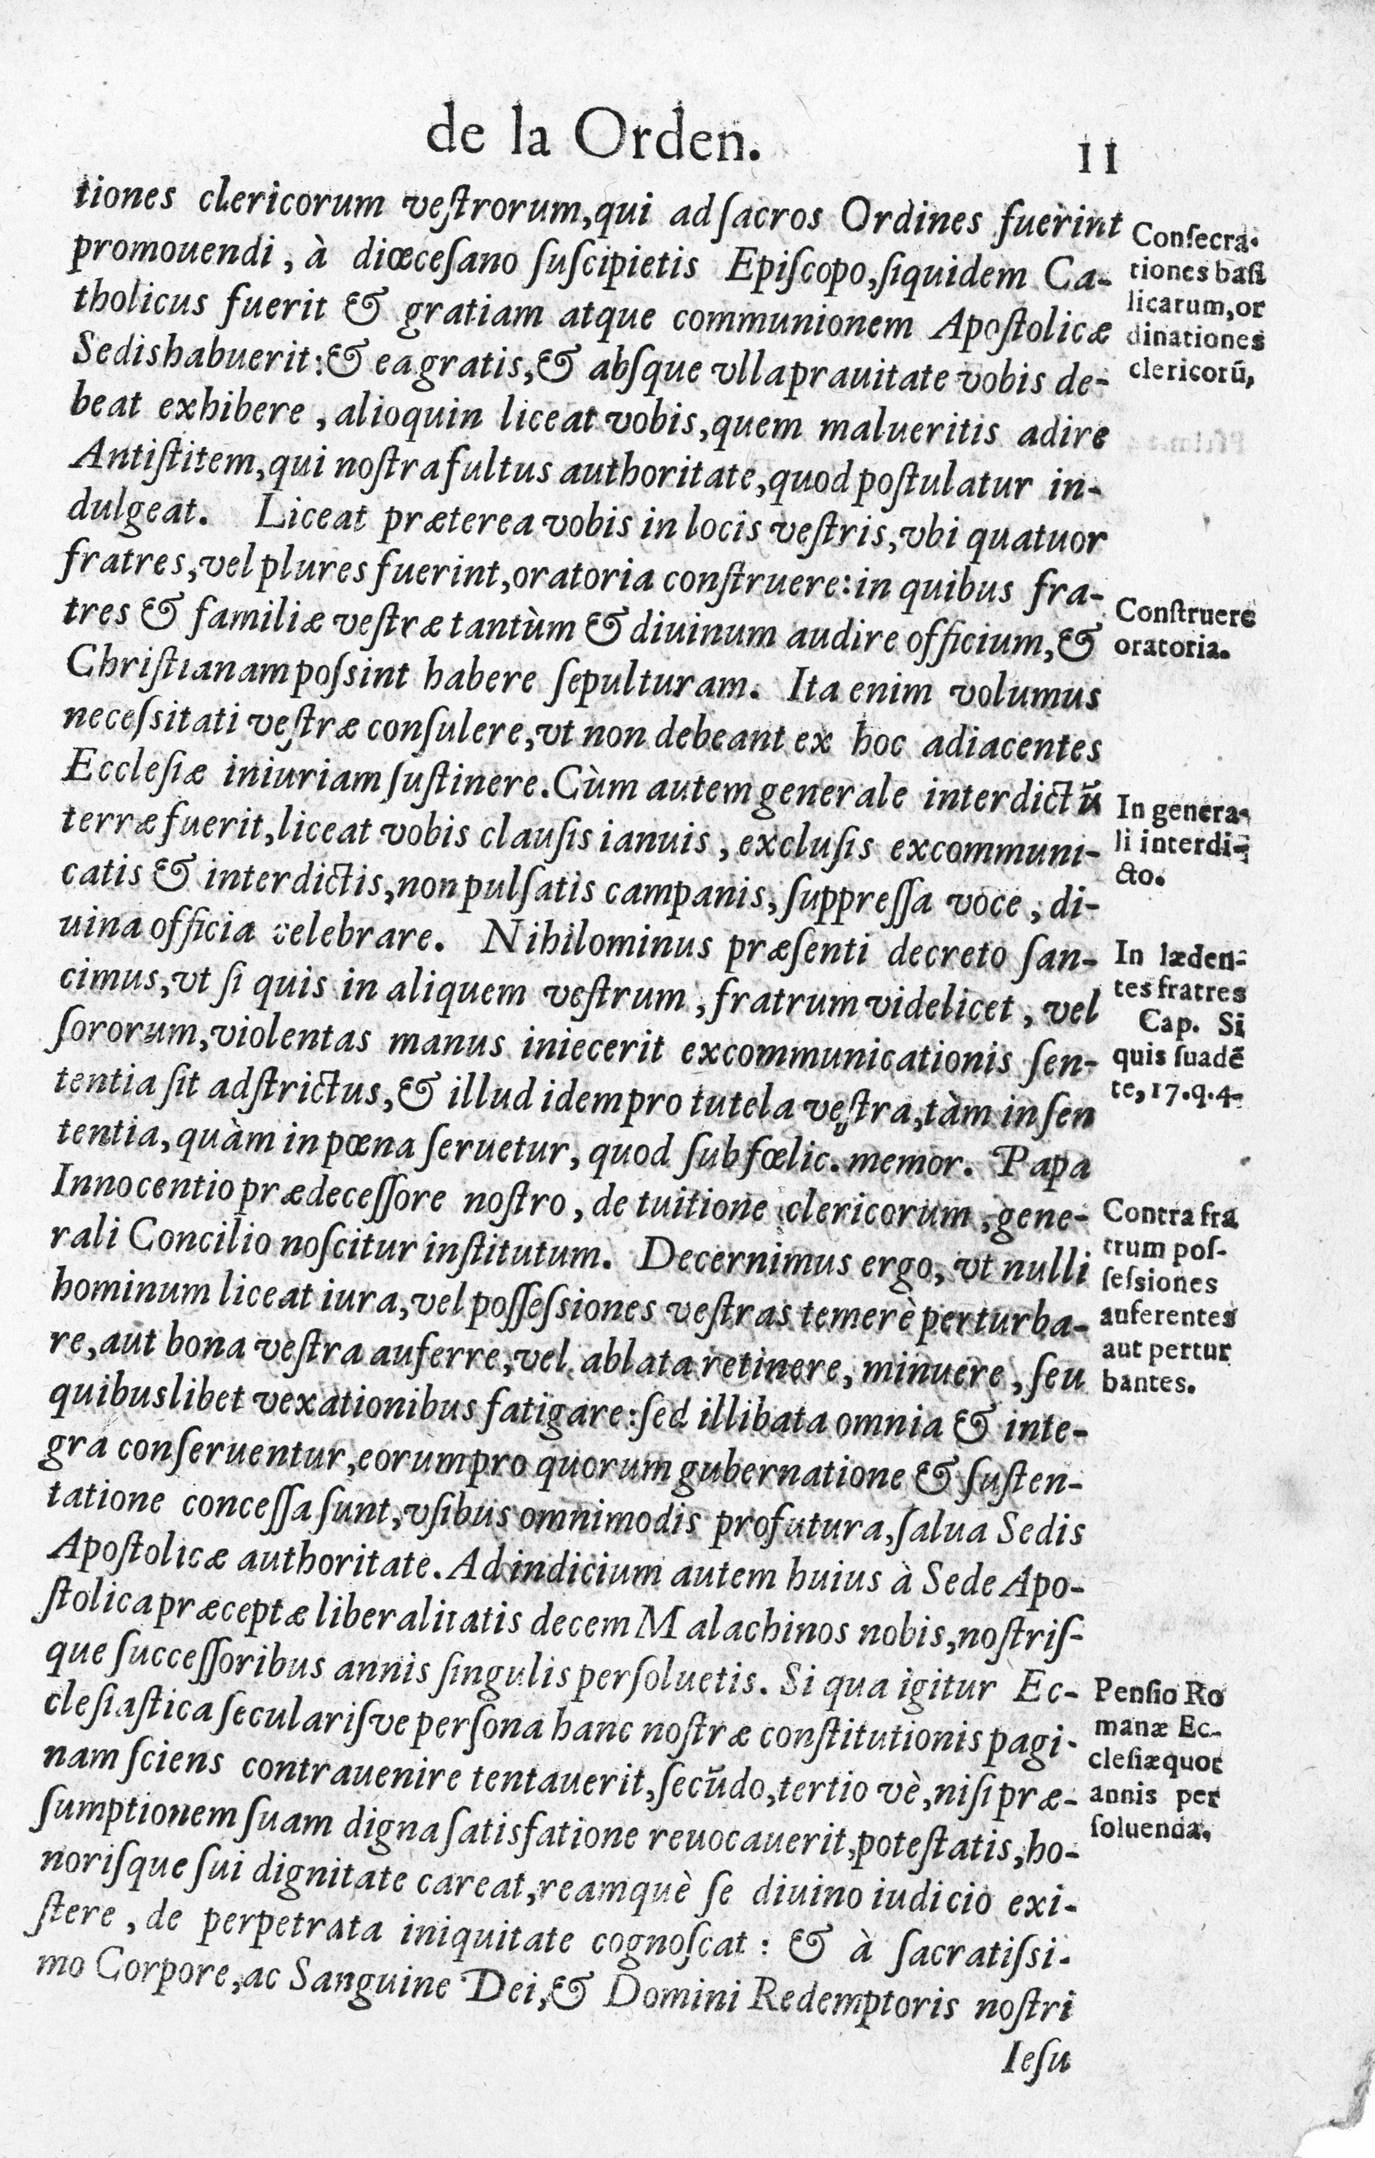 de la Orden.
11
tiones clericorum veſtrorum, qui ad ſacros Ordines fuerint
promouendi, à diœceſano ſuſcipietis Epiſcopo, ſiquidem Ca-
tholicus fuerit & gratiam atque communionem Apoſtolicæ
Sedis habuerit: & ea gratis, & abſque vlla prauitate vobis de-
beat exhibere, alioquin liceat vobis, quem malueritis adire
Antiſtitem, qui noſtra fultus authoritate, quod poſtulatur in-
dulgeat. Liceat præterea vobis in locis veſtris, vbi quatuor
fratres, vel plures fuerint, oratoria conſtruere: in quibus fra-
tres & familiæ veſtræ tantùm & diuinum audire officium, &
Chriſtianam poſsint habere ſepulturam. Ita enim volumus
neceſsitati veſtræ conſulere, vt non debeant ex hoc adiacentes
Eccleſiæ iniuriam ſuſtinere. Cùm autem generale interdictū
terræ fuerit, liceat vobis clauſis ianuis, excluſis excommuni-
catis & interdictis, non pulſatis campanis, ſuppreſſa voce, di-
uina officia celebrare. Nihilominus præſenti decreto ſan-
cimus, vt ſi quis in aliquem veſtrum, fratrum videlicet, vel
ſororum, violentas manus iniecerit excommunicationis ſen-
tentia ſit adſtrictus, & illud idem pro tutela veſtra, tàm in ſen
tentia, quàm in pœna ſeruetur, quod ſub fœlic. memor. Papa
Innocentio prædeceſſore noſtro, de tuitione clericorum, gene-
rali Concilio noſcitur inſtitutum. Decernimus ergo, vt nulli
hominum liceat iura, vel poſſeſsiones veſtras temerè perturba-
re, aut bona veſtra auferre, vel ablata retinere, minuere, ſeu
quibuslibet vexationibus fatigare: ſed illibata omnia & inte-
gra conſeruentur, eorum pro quorum gubernatione & ſuſten-
tatione conceſſa ſunt, vſibus omnimodis profutura, ſalua Sedis
Apoſtolicæ authoritate. Ad indicium autem huius à Sede Apo-
ſtolica præceptæ liberalitatis decem Malachinos nobis, noſtriſ-
que ſucceſſoribus annis ſingulis perſoluetis. Si qua igitur Ec-
cleſiaſtica ſeculariſve perſona hanc noſtræ conſtitutionis pagi-
nam ſciens contrauenire tentauerit, ſecūdo, tertio vè, niſi præ-
ſumptionem ſuam digna ſatisfatione reuocauerit, poteſtatis, ho-
noriſque ſui dignitate careat, reamquè ſe diuino iudicio exi-
ſtere, de perpetrata iniquitate cognoſcat: & à ſacratiſsi-
mo Corpore, ac Sanguine Dei, & Domini Redemptoris noſtri
Ieſu
Conſecra-
tiones baſi
licarum, or
dinationes
clericorū,
Conſtruere
oratoria.
In genera-
li interdi-
cto.
In læden-
tes fratres
Cap. Si
quis ſuadē
te, 17.q.4.
Contra fra
trum poſ-
ſeſsiones
auferentes
aut pertur
bantes.
Penſio Ro
manæ Ec-
cleſiæ quot
annis per
ſoluenda,